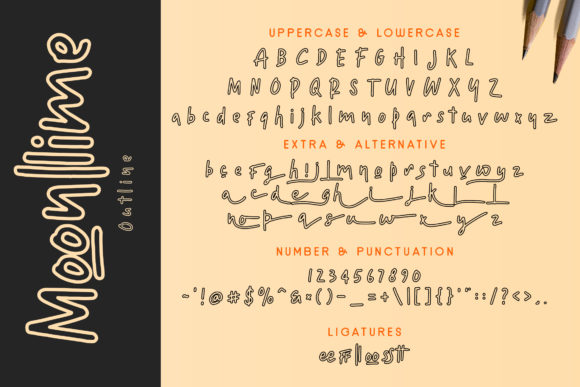 Moonllime
Outline
UPPERCASE & LOWERCASE
A B C D E F G H I J K L
M N O P Q R S T U V W X Y Z
a b c d e f g h i j k l m n o p q r s t u v w x y z
EXTRA & ALTERNATIVE
b c e f g h i j l m n o p r s t u v w y z
n o p q s u w x y z
NUMBER & PUNCTUATION
1 2 3 4 5 6 7 8 9 0
~ ' ! @ # $ % ^ & × ( ) - _ = + \ | [ ] { } ' " : : / ? < > , .
LIGATURES
ee ff ll oo ss tt